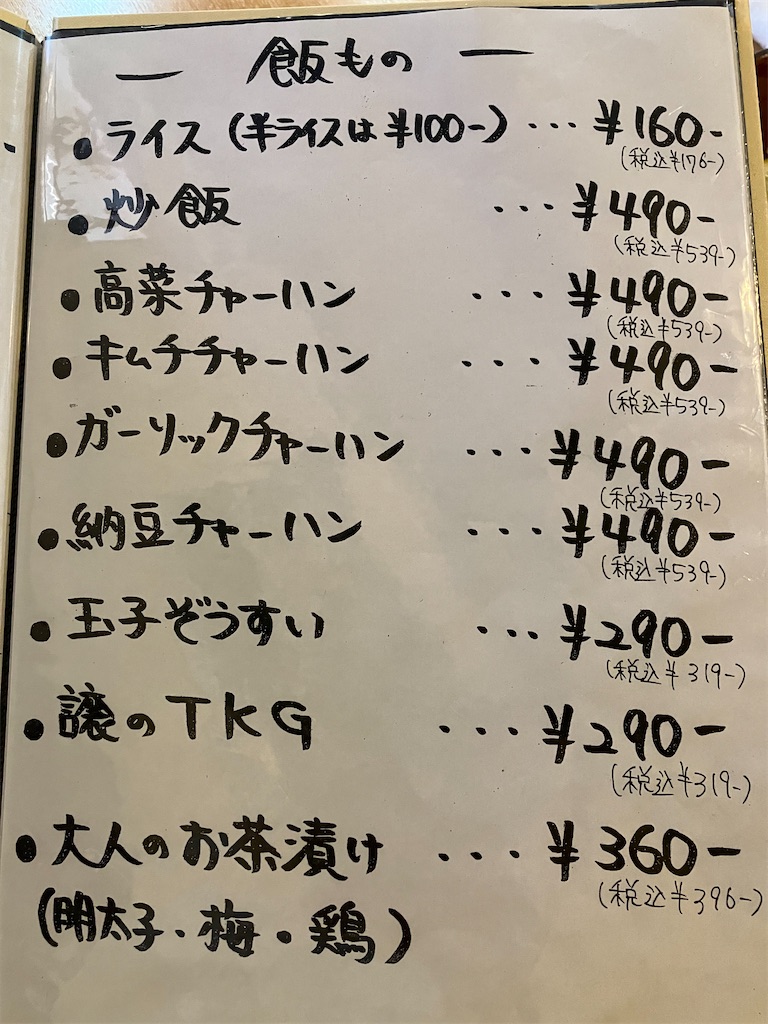 ― 飯もの ―
・ライス (半ライスは ¥100-) … ¥160-
(税込¥176-)
・炒飯 … ¥490-
(税込¥539-)
・高菜チャーハン … ¥490-
(税込¥539-)
・キムチチャーハン … ¥490-
(税込¥539-)
・ガーリックチャーハン … ¥490-
(税込¥539-)
・納豆チャーハン … ¥490-
(税込¥539-)
・玉子ぞうすい … ¥290-
(税込¥319-)
・譲のTKG … ¥290-
(税込¥319-)
・大人のお茶漬け … ¥360-
(税込¥396-)
(明太子・梅・鶏)